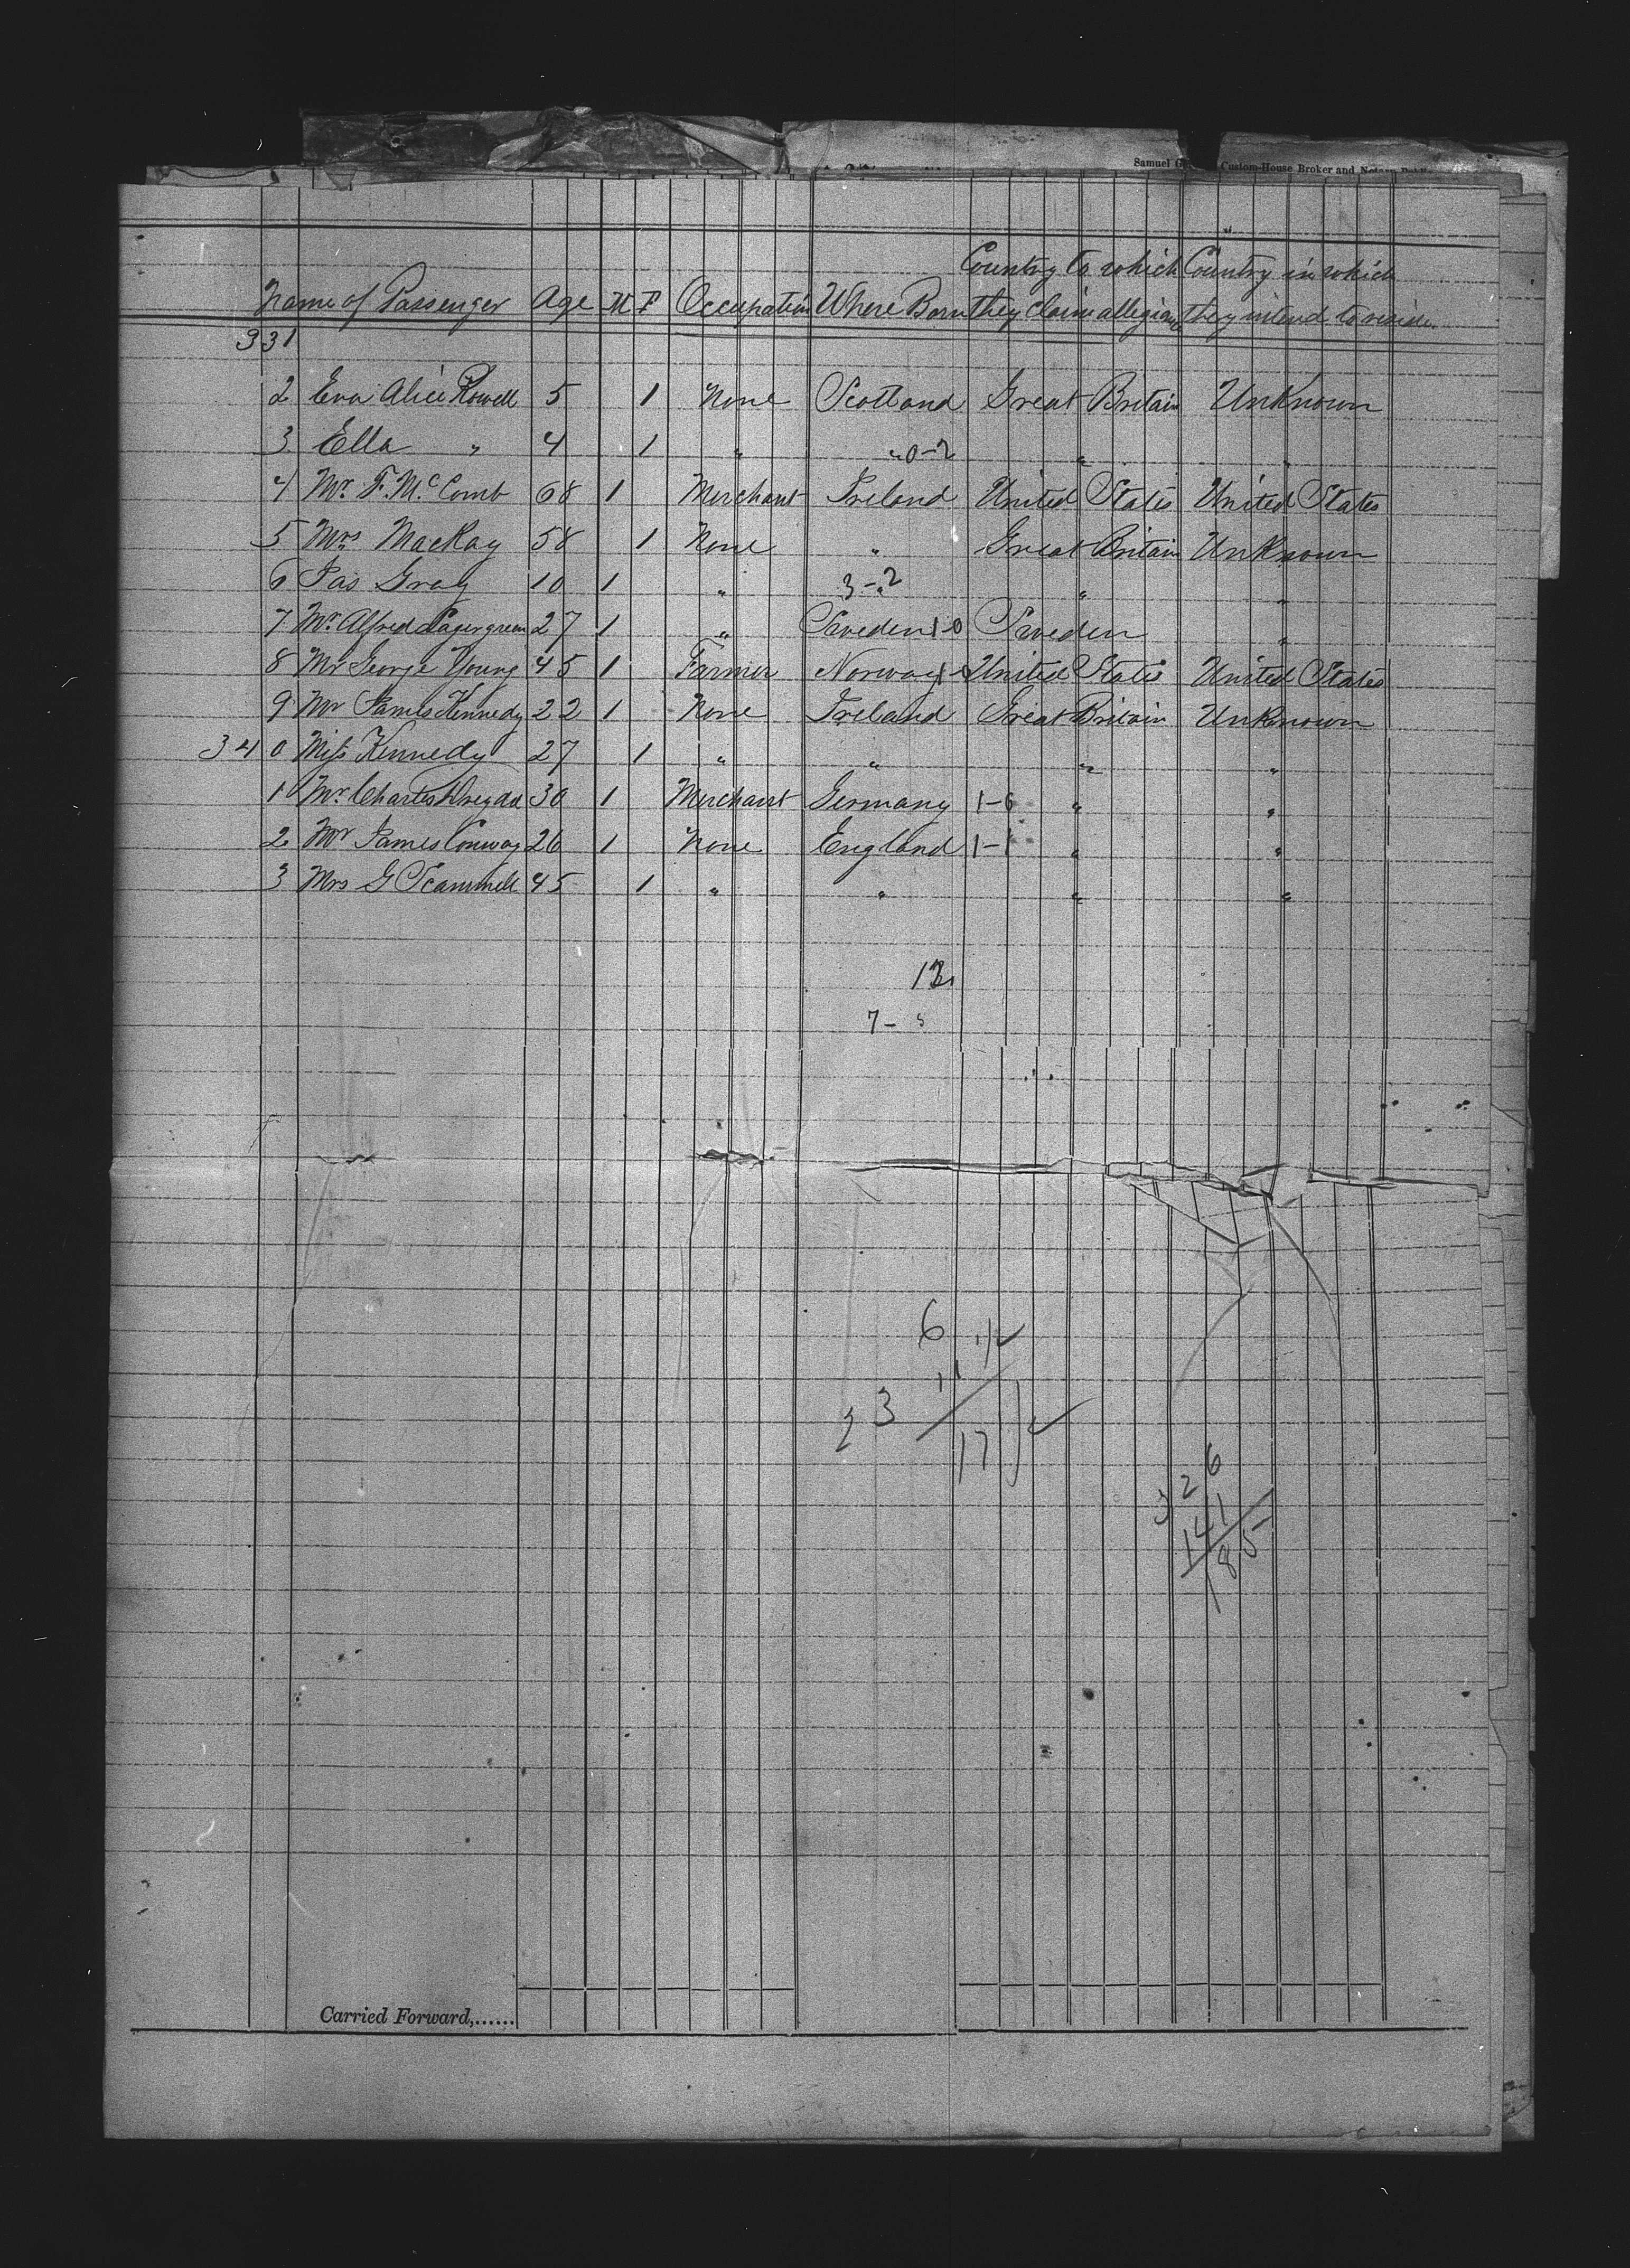 Samuel Custom-House Broker and
Country to which Country in which
Name of Passenger Age M F Occupation Where Born they claim allegiance they intend to reside
331
2 Eva Alice Rowell 5 1 None Scotland Great Britain Unknown
3 Ella " 4 1 " " 0-2 " "
4 Mr. F. McComb 68 1 Merchant Ireland United States United States
5 Mrs MacKay 58 1 None " Great Britain Unknown
6 Jas Gray 10 1 " 3-2 " "
7 Mr. Alfred Lagergreen 27 1 " Sweden 1-0 Sweden "
8 Mr George Young 45 1 Farmer Norway United States United States
9 Mr James Kennedy 22 1 None Ireland Great Britain Unknown
340 Miss Kennedy 27 1 " " " "
1 Mr. Charles 30 1 Merchant Germany 1-6 " "
2 Mr James Conway 26 1 None England 1-1 " "
3 Mrs G Scammell 45 1 " " " "
13
7-5
6
11
23
17
326
141
185
Carried Forward,......